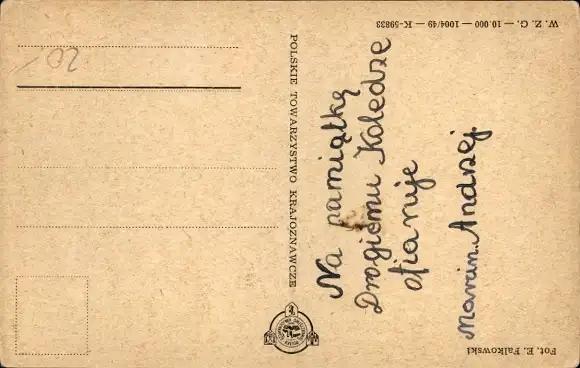 Na pamiątkę
Drogiemu Koledze
ofiaruje
Marcin Andrzej.
POLSKIE TOWARZYSTWO KRAJOZNAWCZE
Fot. E. Falkowski
W. Z. G. — 10.000 — 1004/49 — K-59833
20/